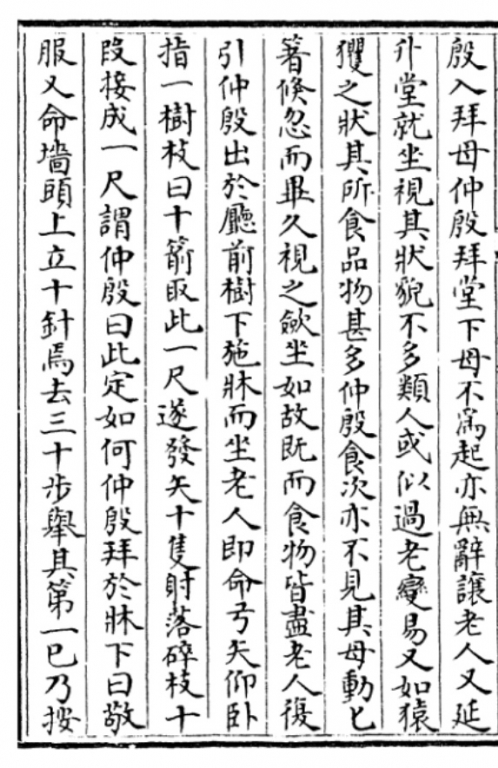 殷入拜母仲殷拜堂下母不爲起亦無辭讓老人又延
升堂就坐視其狀貌不多類人或似過老變易又如猿
玃之狀其所食品物甚多仲殷食次亦不見其母動匕
箸倐忽而畢久視之歛坐如故既而食物皆盡老人復
引仲殷出於廳前樹下施牀而坐老人即命弓矢仰卧
指一樹枝曰十箭取此一尺遂發矢十隻射落碎枝十
段接成一尺謂仲殷曰此定如何仲殷拜於牀下曰敬
服又命墻頭上立十針焉去三十步舉其第一巳乃按